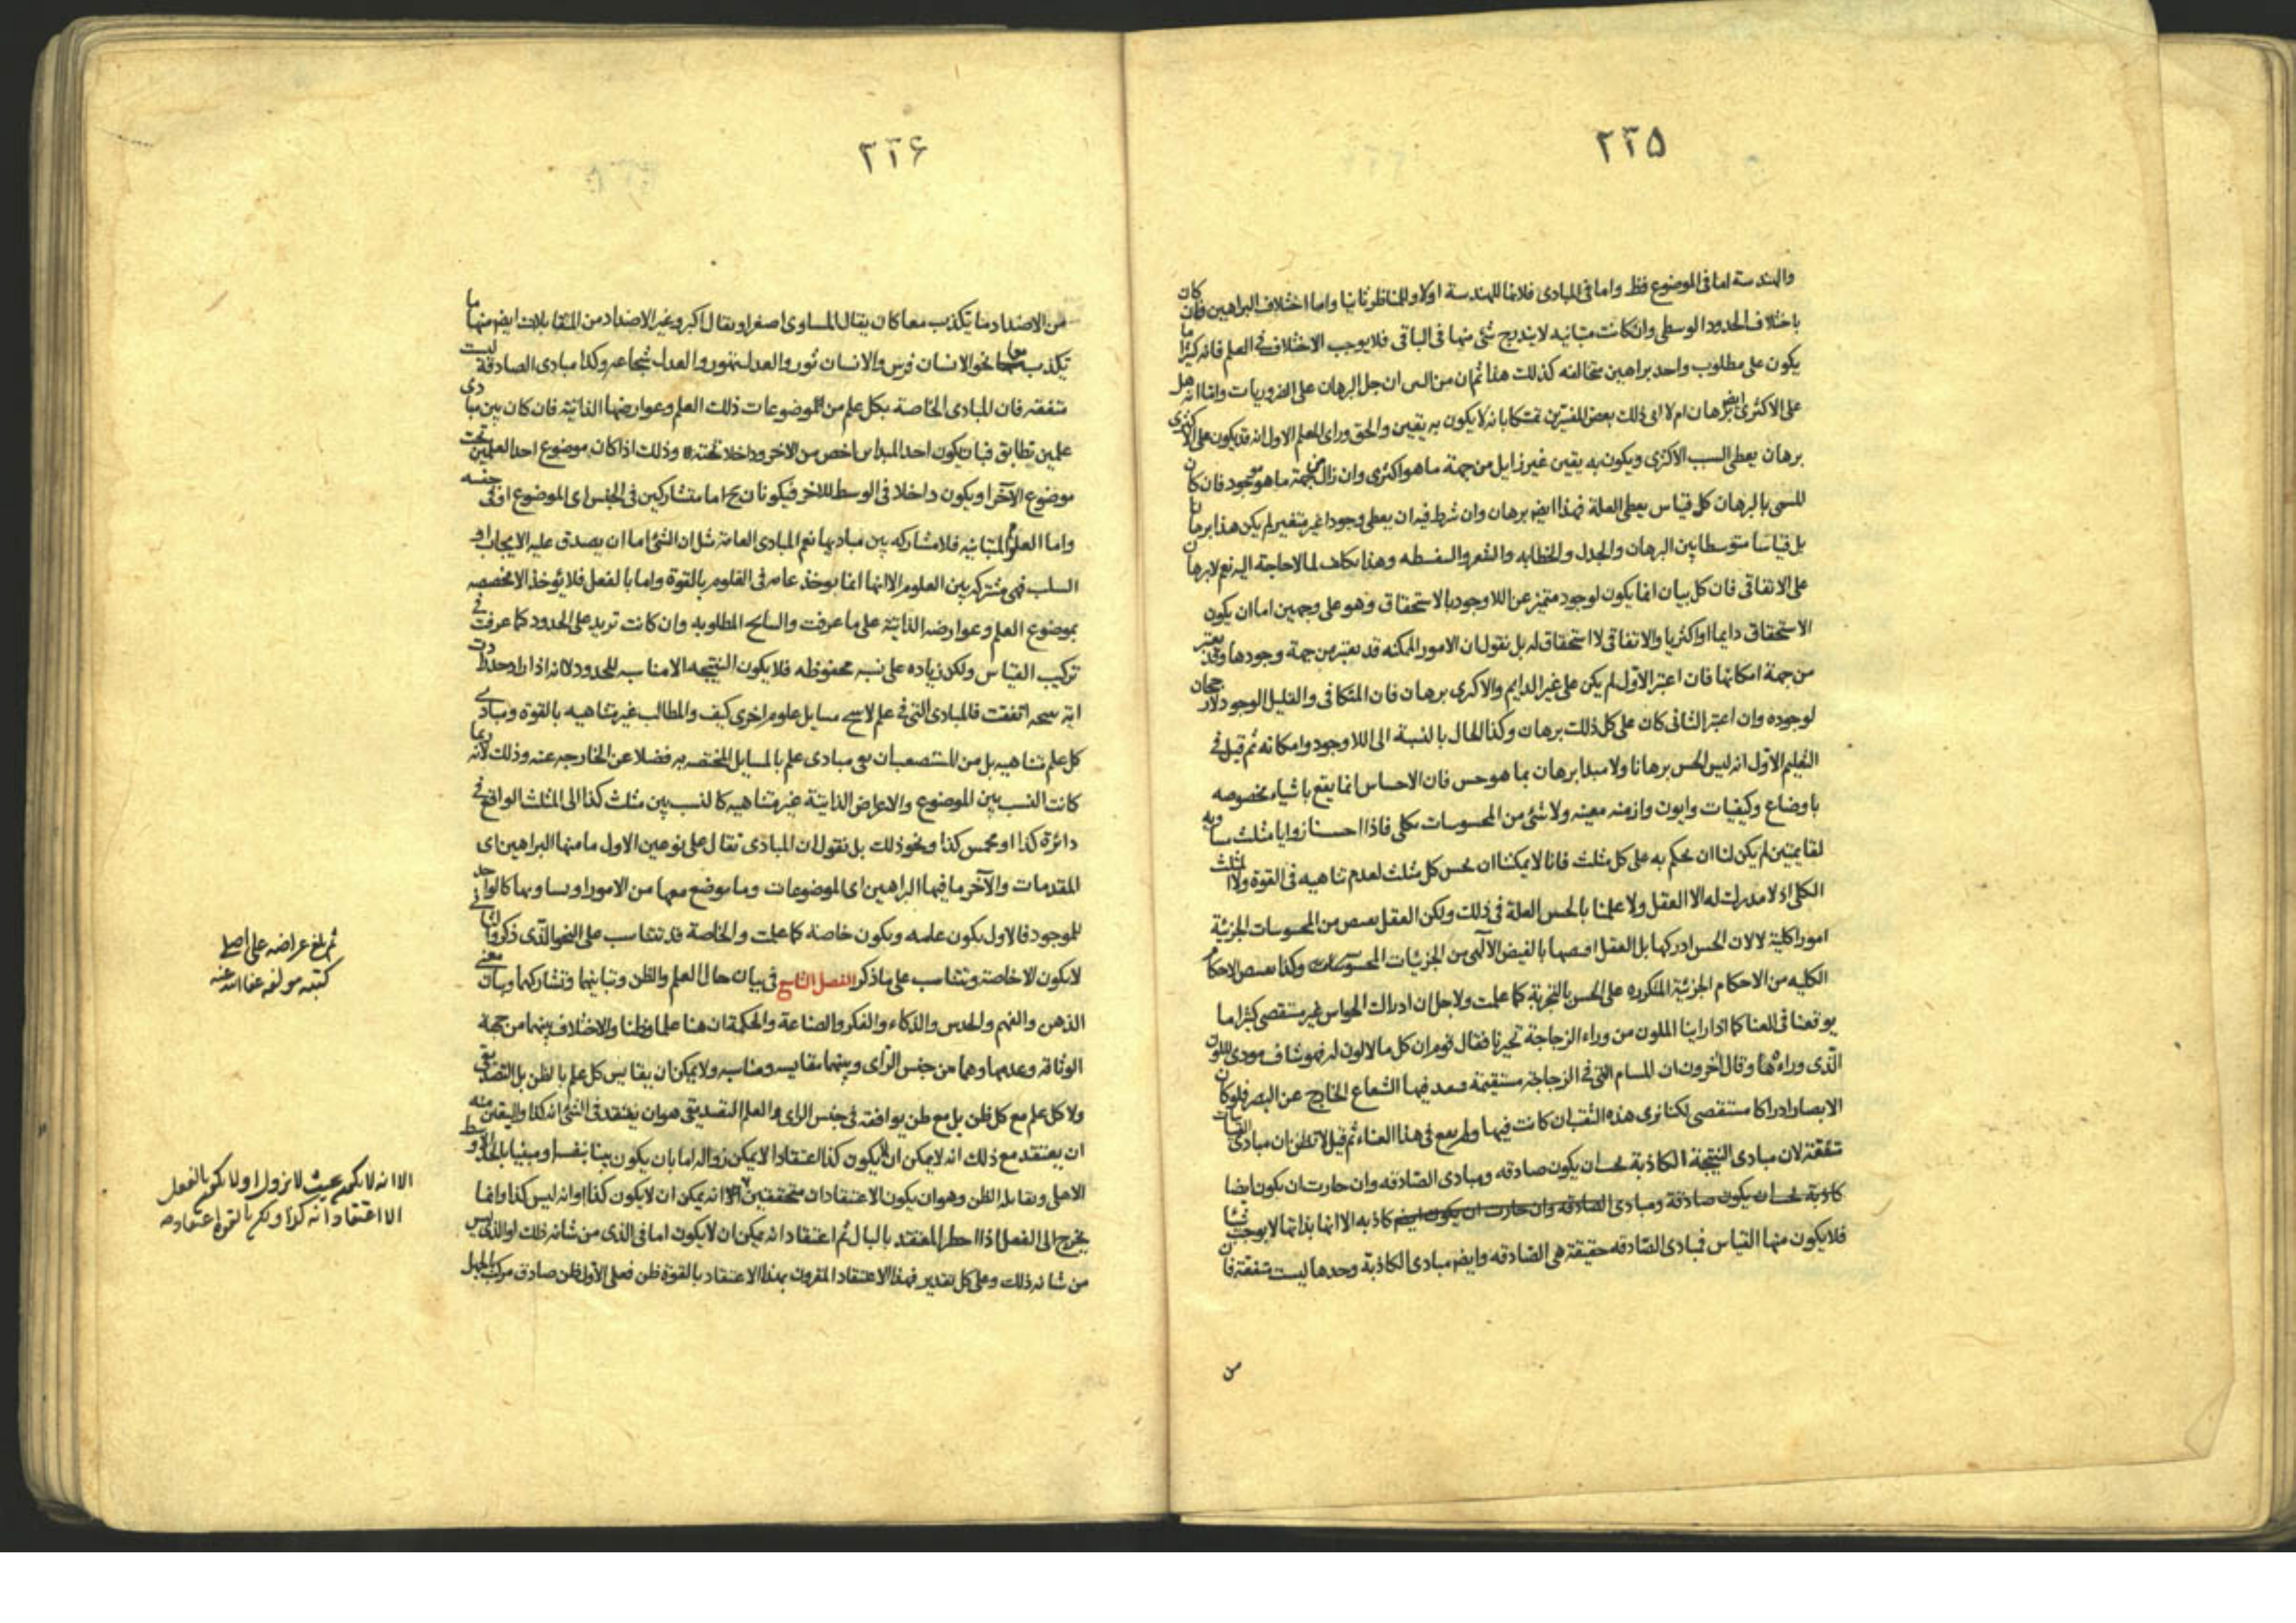 ٢٢٥
والهندسة اما فى الموضوع فظ واما فى المبادى فلانها للهندسة اولا وللمناظر ثانيا واما اختلاف البراهين فان كان
باختلاف الحدود الوسطى وان كانت متباينه لا يندرج شئ منها فى الباقى فلا يوجب الاختلاف فى العلم فانه كثيرا ما
يكون على مطلوب واحد براهين متخالفه كذلك هذا ثم ان من الس ان جل البرهان على الضروريات وانما انه هل
على الاكثرى ايض برهان ام لا ابى ذلك بعض المفسرين تمسكا بانه لا يكون به يقين والحق وراى المعلم الاول انه قد يكون على الاكثرى
برهان يعطى السبب الاكثرى ويكون به يقين غير زايل من جهة ما هو اكثرى وان زال من جهة ما هو موجود فان كان
المسمى بالبرهان كل قياس يعطى العلة فهذا ايض برهان وان شرط فيه ان يعطى وجودا غير متغير لم يكن هذا برهانا
بل قياسا متوسطا بين البرهان والجدل والخطابه والشعر والسفسطه وهذا تكلف لما لا حاجة اليه نعم لا برهان
على الاتفاقى فان كل بيان انما يكون لوجود متميز عن اللاوجود بالاستحقاق وهو على وجهين اما ان يكون
الاستحقاق دايما او اكثريا والاتفاقى لا استحقاق له بل نقول ان الامور الممكنه قد تعتبر من جهة وجودها وقد يعتبر
من جهة امكانها فان اعتبر الاول لم يكن على غير الدايم والاكثرى برهان فان المتكافى والقليل الوجود لا رجحان
لوجوده وان اعتبر الثانى كان على كل ذلك برهان وكذا الحال بالنسبة الى اللاوجود وامكانه ثم قيل فى
التعليم الاول انه ليس الحس برهانا ولا مبدا برهان بما هو حس فان الاحساس انما يقع باشياء مخصوصه
باوضاع وكيفيات وايون وازمنه معينه ولا شئ من المحسوسات بكلى فاذا احسسنا زوايا مثلث مساويه
لقايمتين لم يكن لنا ان نحكم به على كل مثلث فانا لا يمكننا ان نحس كل مثلث لعدم تناهيه فى القوة ولا المثلث
الكلى اذ لا مدرك له الا العقل ولا علمنا بالحس العلة فى ذلك ولكن العقل يقتنص من المحسوسات الجزئية
امورا كلية لا لان الحس ادركها بل العقل اقتنصها بالفيض الآلهى من الجزئيات المحسوسات وكذا يقتنص الاحكام
الكليه من الاحكام الجزئية المتكرره على الحس بالتجربة كما علمت ولاجل ان ادراك الحواس غير مستقصى كثيرا ما
يوقعنا فى العنا كما اذا راينا الملون من وراء الزجاجة تحيرنا فقال قوم ان كل ما لا لون له فهو شاف مودى للون
الذى وراءها وقال آخرون ان المسام التى فى الزجاجة مستقيمة فينفذ فيها الشعاع الخارج عن البصر فلو كان
الابصار ادراكا مستقصى لكنا نرى هذه الثقب ان كانت فيها ولم يقع فى هذا العناء ثم قيل لا تظن ان مبادى القياسات
متفقة لان مبادى النتيجة الكاذبة يجب ان يكون صادقه ومبادى الصادقه وان جازت ان يكون ايضا
كاذبة يجب ان يكون صادقة ومبادى الصادقه وان جازت ان يكون ايض كاذبه الا انها بذاتها لا يوجب شيئا
فلا يكون منها القياس فمبادى الصادقه حقيقة هى الصادقه وايض مبادى الكاذبة وحدها ليست متفقة فان
من
٢٢۶
من الاضداد ما يكذب معا كان يقال المساوى اصغر او يقال اكبر وغير الاضداد من المتقابلات ايض منها ما
يكذب معا نحو الانسان فرس والانسان ثور والعدل تهور والعدل شجاعه وكذا مبادى الصادقة ليست
متفقه فان المبادى الخاصة بكل علم من الموضوعات ذلك العلم وعوارضها الذاتية فان كان بين مبادى
علمين تطابق فبان يكون احد المبداين اخص من الاخر وداخلا تحته وذلك اذا كان موضوع احد العلمين تحت
موضوع الآخر او يكون داخلا فى الوسط للاخر فيكونان ح اما متشاركين فى الجنس اى الموضوع او فى جنسه
واما العلوم المتباينه فلا مشاركه بين مباديها نعم المبادى العامة مثل ان الشئ اما ان يصدق عليه الايجاب او
السلب فهى مشتركه بين العلوم الا انها انما يوخذ عامه فى العلوم بالقوة واما بالفعل فلا يؤخذ الا مخصصه
بموضوع العلم وعوارضه الذاتية على ما عرفت والنتايج المطلوبه وان كانت تزيد على الحدود كما عرفت فى
تركيب القياس ولكن زياده على نسبه محفوظه فلا يكون النتيجه الا مناسبه للحدود لا انه اذا زاوجت
اية نتيجه اتفقت فالمبادى التى فى علم لا مسايل علوم اخرى كيف والمطالب غير متناهيه بالقوة ومبادى
كل علم متناهيه بل من المستصعب ان يفى مبادى علم بالمسايل المختصه به فضلا عن الخارجه عنه وذلك لانه ربما
كانت النسب بين الموضوع والاعراض الذاتية غير متناهيه كالنسب بين مثلث كذا الى المثلث الواقع فى
دائرة كذا او مخمس كذا ونحو ذلك بل نقول ان المبادى تقال على نوعين الاول ما منها البراهين اى
المقدمات والآخر ما فيها البراهين اى الموضوعات وما يوضع معها من الامور او يساويها كالواحد
للموجود فالاول يكون عامه ويكون خاصة كما علمت والخاصة قد تتناسب على النحو الذى ذكروا الثانى
لا يكون الا خاصة وتتناسب على ما ذكر الفصل التاسع فى بيان حال العلم والظن وتباينهما وتشاركهما وبيان معنى
الذهن والفهم والحدس والذكاء والفكر والصناعة والحكمة ان هنا علما وظنا والاختلاف بينهما من جهة
الوثاقه وعدمها وهما من جنس الراى وبينهما مقايسه ومناسبه ولا يمكن ان يقايس كل علم بالظن بل التصديقى
ولا كل علم مع كل ظن بل مع ظن يوافقه فى جنس الراى والعلم التصديقى هو ان يعتقد فى الشئ انه كذا واليقين منه
ان يعتقد مع ذلك انه لا يمكن ان لا يكون كذا اعتقادا لا يمكن زواله اما بان يكون بينا بنفسه او مبنيا بالحد الاوسط
الاهل ويقابله الظن وهو ان يكون الاعتقادان متحققين انه يمكن ان لا يكون كذا او انه ليس كذا وانما
يخرج الى الفعل اذا اخطر المعتقد بالبال ثم اعتقاد انه يمكن ان لا يكون اما فى الذى من شانه ذلك او الذى ليس
من شانه ذلك وعلى كل تقدير فهذا الاعتقاد المقرون بهذا الاعتقاد بالقوة ظن فعلى الاول ظن صادق مركب بالجهل
ثم بلغ عراضه على أصلى
كتبه مولفه عفا الله عنه
الا انه لا يكون بحيث لا يزول او لا يكون بالفعل
الا اعتقاد انه كذا ويكون بالقوة اعتقاد